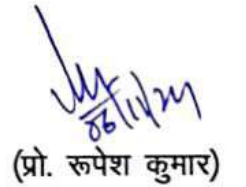 06/11/24
(प्रो. रूपेश कुमार)